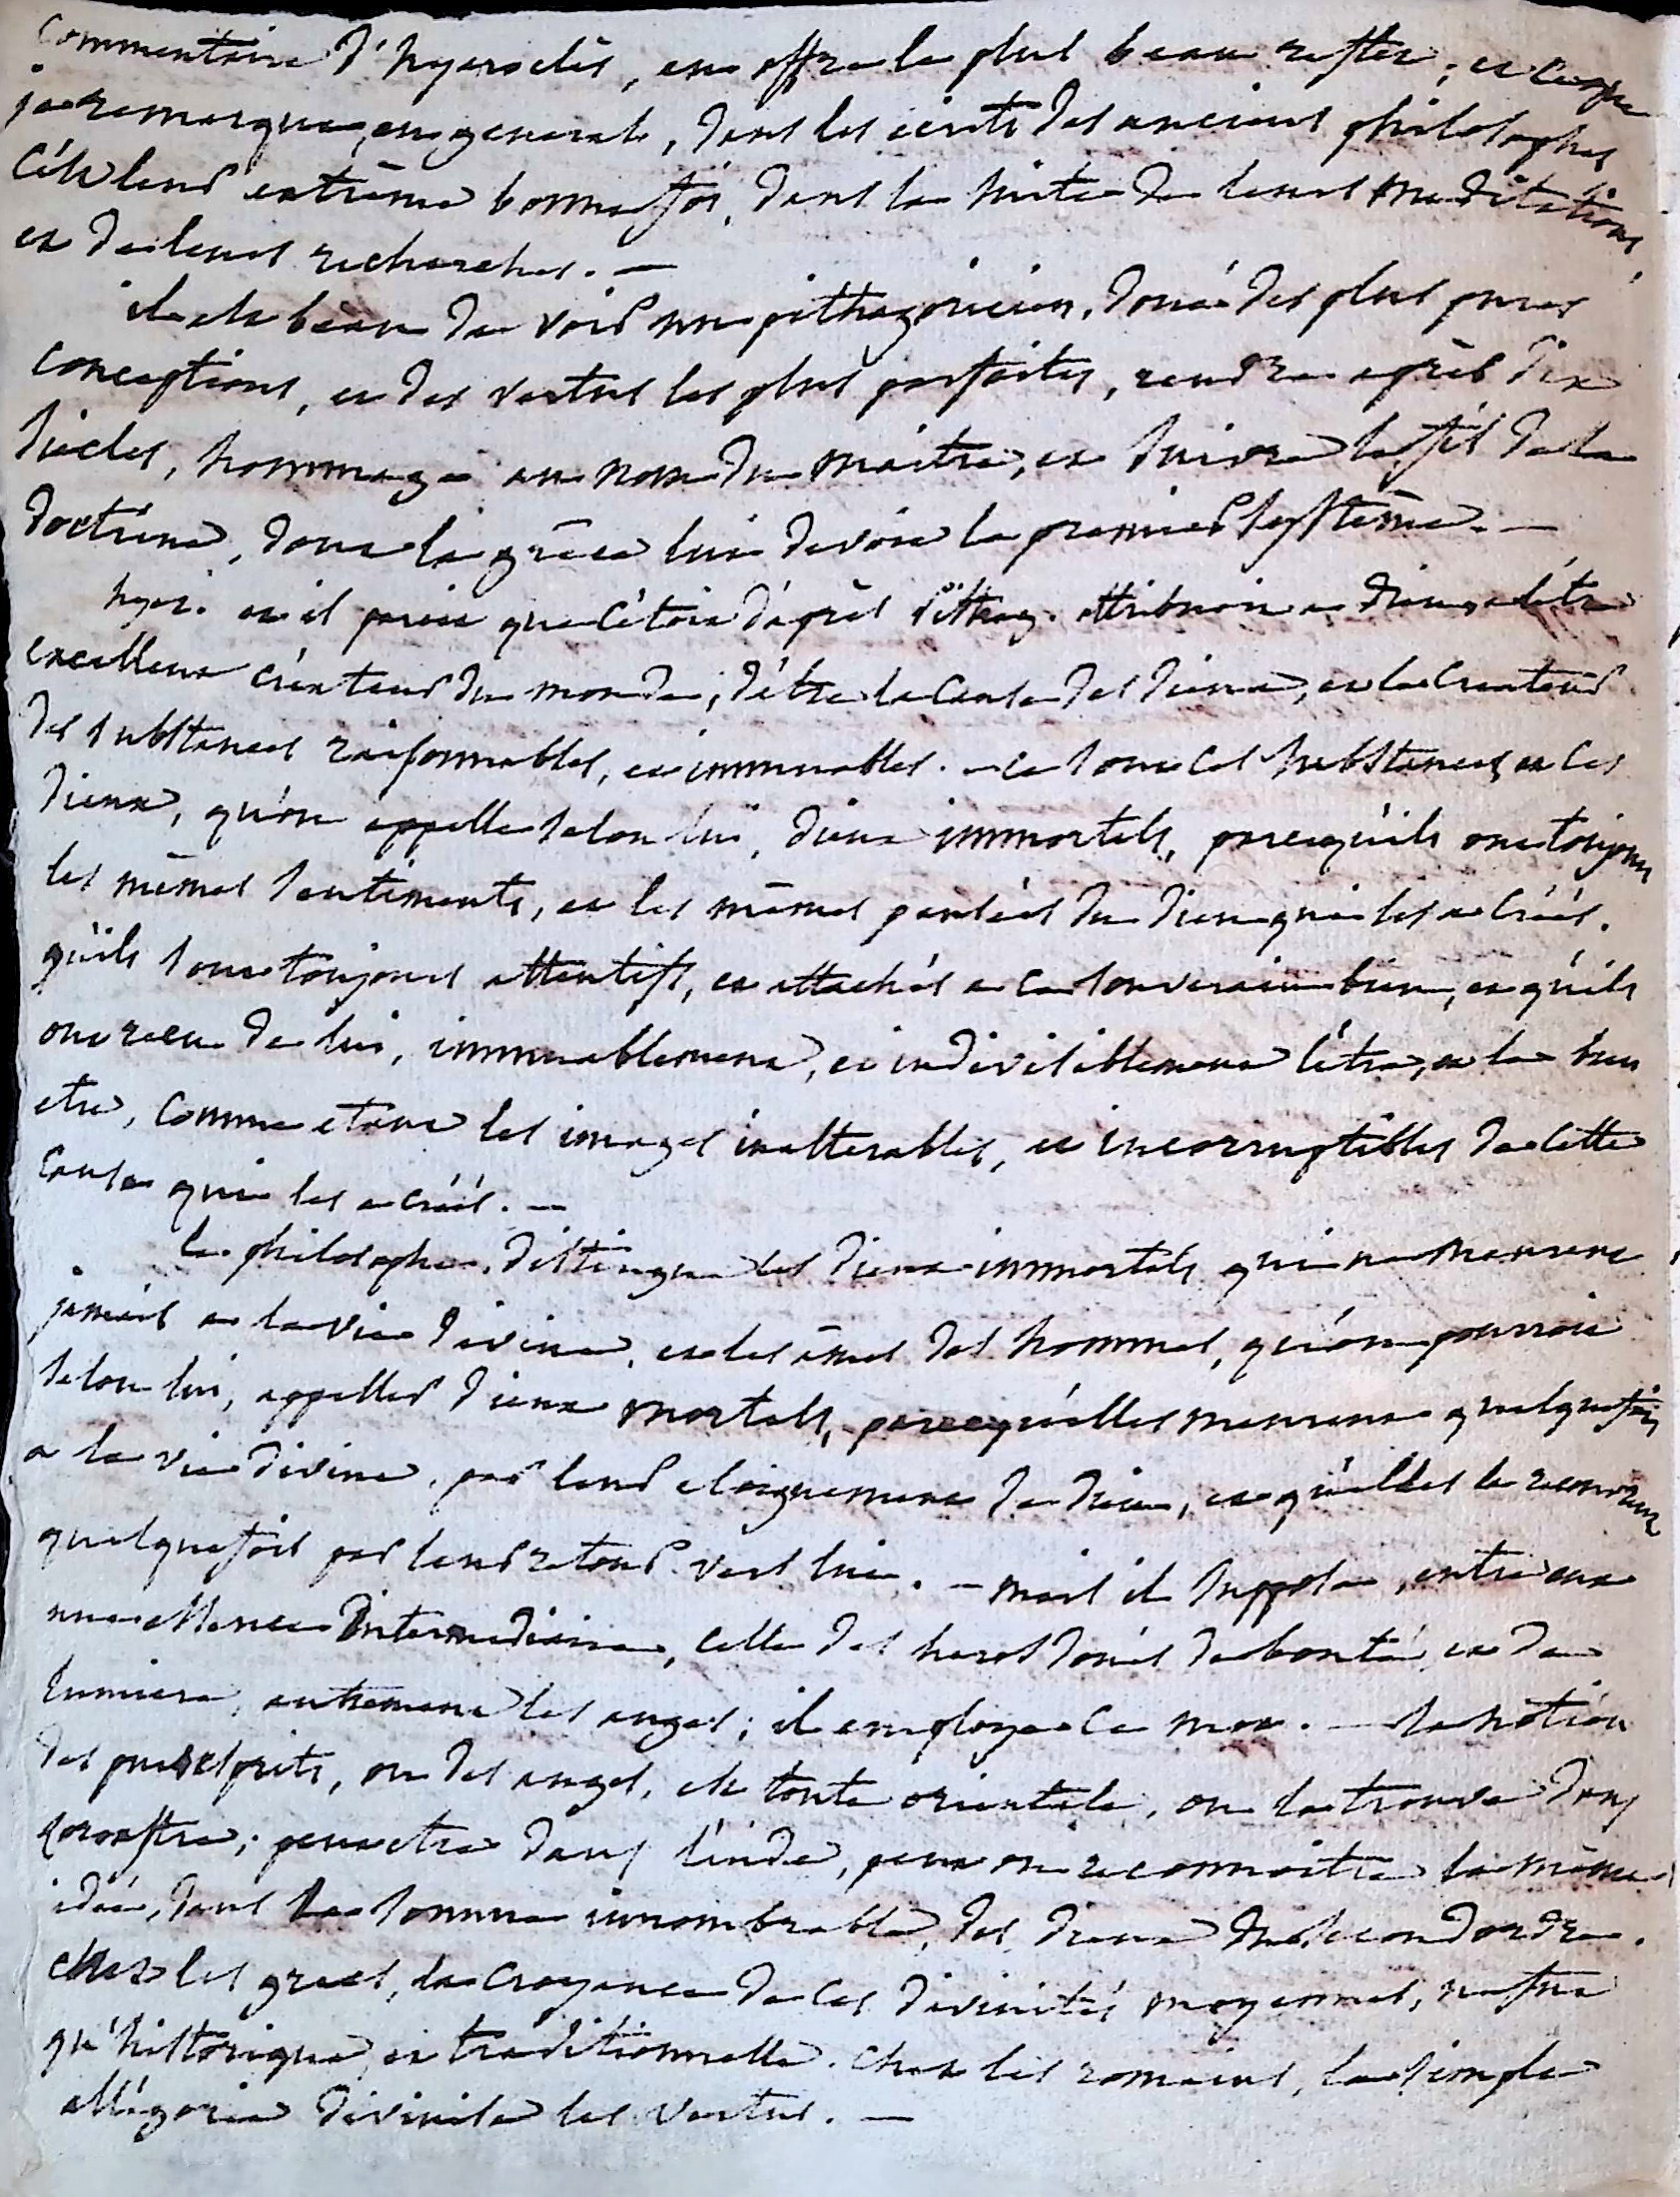 commentaire d'hyerocles, en offre le plus beau reste; et ce que
je remarque, en general, dans les écrits des anciens philosophes
c'est leur extrême bonne foi, dans la suite de leurs meditations,
et de leurs recherches. —
il est beau de voir un pithagoricien, doué des plus pures
conceptions, et des vertus les plus parfaites, rendre après dix
siècles, hommage au nom du maitre, et suivre le fil de la
doctrine, dont la grèce lui devoit le premier systême. —
hyer. et il paroit que c'étoit d'après Pithag. attribuoit a dieu, d'être
excellent créateur du monde, d'être la cause des dieux, et le createur
des substances raisonnables, et immuables. — ce sont ces substances, et ces
dieux, qu'on appelle selon lui, dieux immortels, parcequ'ils ont toujours
les mêmes sentiments, et les mêmes pensées du dieu qui les a créés.
qu'ils sont toujours attentifs, et attachés a ce souverain bien, et qu'ils
ont recu de lui, immuablement, et indivisiblement l'être, et le bien
etre, comme etant les images inalterables, et incorruptibles de cette
cause qui les a créés. —
le philosophe, distingue les dieux immortels qui ne meurent
jamais a la vie divine, et les âmes des hommes, qu'on pourroit
selon lui, appeller dieux mortels, parcequ'elles meurent quelquefois
a la vie divine, par leur eloignement de dieu, et qu'elles la recouvrent
quelquefois par leur retour vers lui. — mais il suppose, entre eux
une essence intermediaire, celle des heros doués de bonté, et de
lumiere, autrement les anges; il employe ce mot. — la notion
des purs esprits, ou des anges, est toute orientale, on la trouve dans
zoroastre; peut etre dans l'inde, peut on reconnoitre la même
idée, dans la somme innombrable, des dieux du second ordre.
chez les grecs, la croyance de ces divinités moyennes, ne fut
qu'historique, et traditionnelle. chez les romains, la simple
allégorie divinise les vertus. —